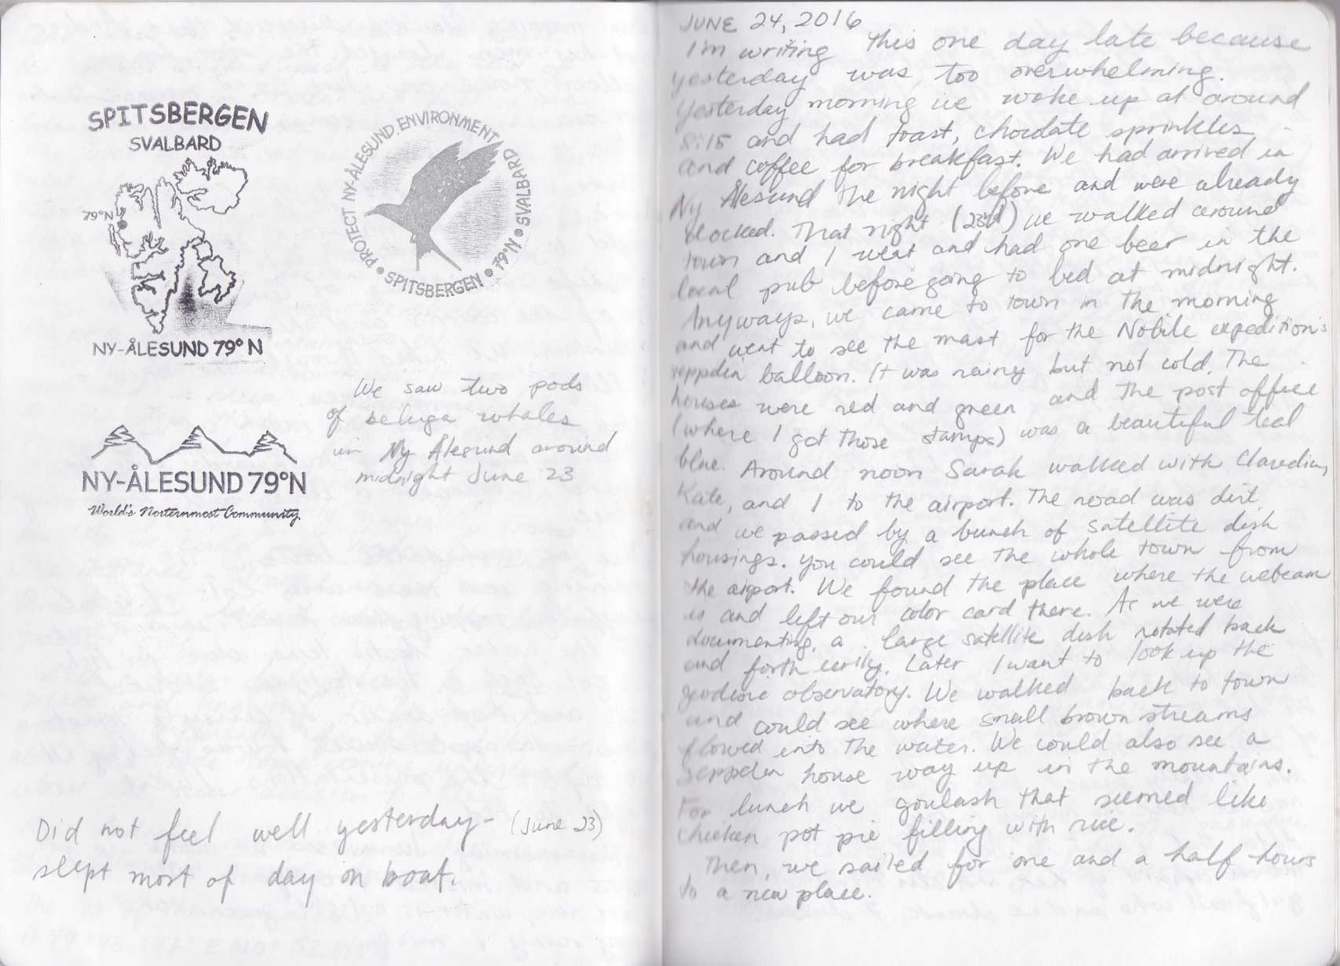 SPITSBERGEN
SVALBARD
79°N
NY-ÅLESUND 79° N
PROTECT NY-ÅLESUND ENVIRONMENT
• SPITSBERGEN • 79°N • SVALBARD
We saw two pods
of beluga whales
in Ny Alesund around
midnight June 23
NY-ÅLESUND 79°N
World's Norternmost Community
Did not feel well yesterday - (June 23)
slept most of day on boat.
JUNE 24, 2016
I'm writing this one day late because
yesterday was too overwhelming.
Yesterday morning we woke up at around
8:15 and had toast, chocolate sprinkles
and coffee for breakfast. We had arrived in
Ny Alesund the night before and were already
docked. That night (23rd) we walked around
town and I went and had one beer in the
local pub before going to bed at midnight.
Anyways, we came to town in the morning
and went to see the mast for the Nobile expedition's
balloon. It was rainy but not cold. The
houses were red and green and the post office
(where I got those stamps) was a beautiful teal
blue. Around noon Sarah walked with Claudia,
Kate, and I to the airport. The road was dirt
and we passed by a bunch of satellite dish
housings. You could see the whole town from
the airport. We found the place where the webcam
is and left our color card there. As we were
documenting, a large satellite dish rotated back
and forth eerily. Later I want to look up the
observatory. We walked back to town
and could see where small brown streams
flowed into the water. We could also see a
house way up in the mountains.
For lunch we goulash that seemed like
chicken pot pie filling with rice.
Then, we sailed for one and a half hours
to a new place.